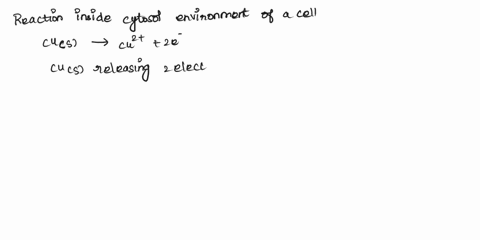 Reaction inside cytosol environment of a cell
Cu(s) → Cu²⁺ + 2e⁻
Cu(s) releasing 2 elect